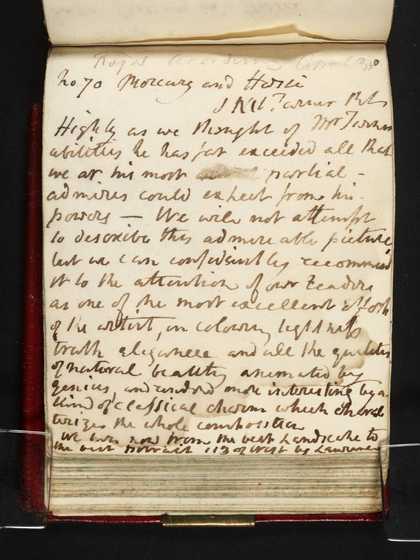 Royal Academy
No 70 Mercury and Herse
J M W Turner
Highly as we thought of Mr Turners
abilities he has far exceeded all that
we or his most partial
admirers could expect from his
powers — We will not attempt
to describe this admirable picture
but we can confidently recommend
it to the attention of our readers
as one of the most excellent efforts
of the artist, in coloring lightness
truth elegance and all the qualities
of natural beauty animated by
genius and rendered more interesting by a
kind of classical charm which charac
terizes the whole composition
We turn now from the best Landscape to
the best Portrait West by Lawrence